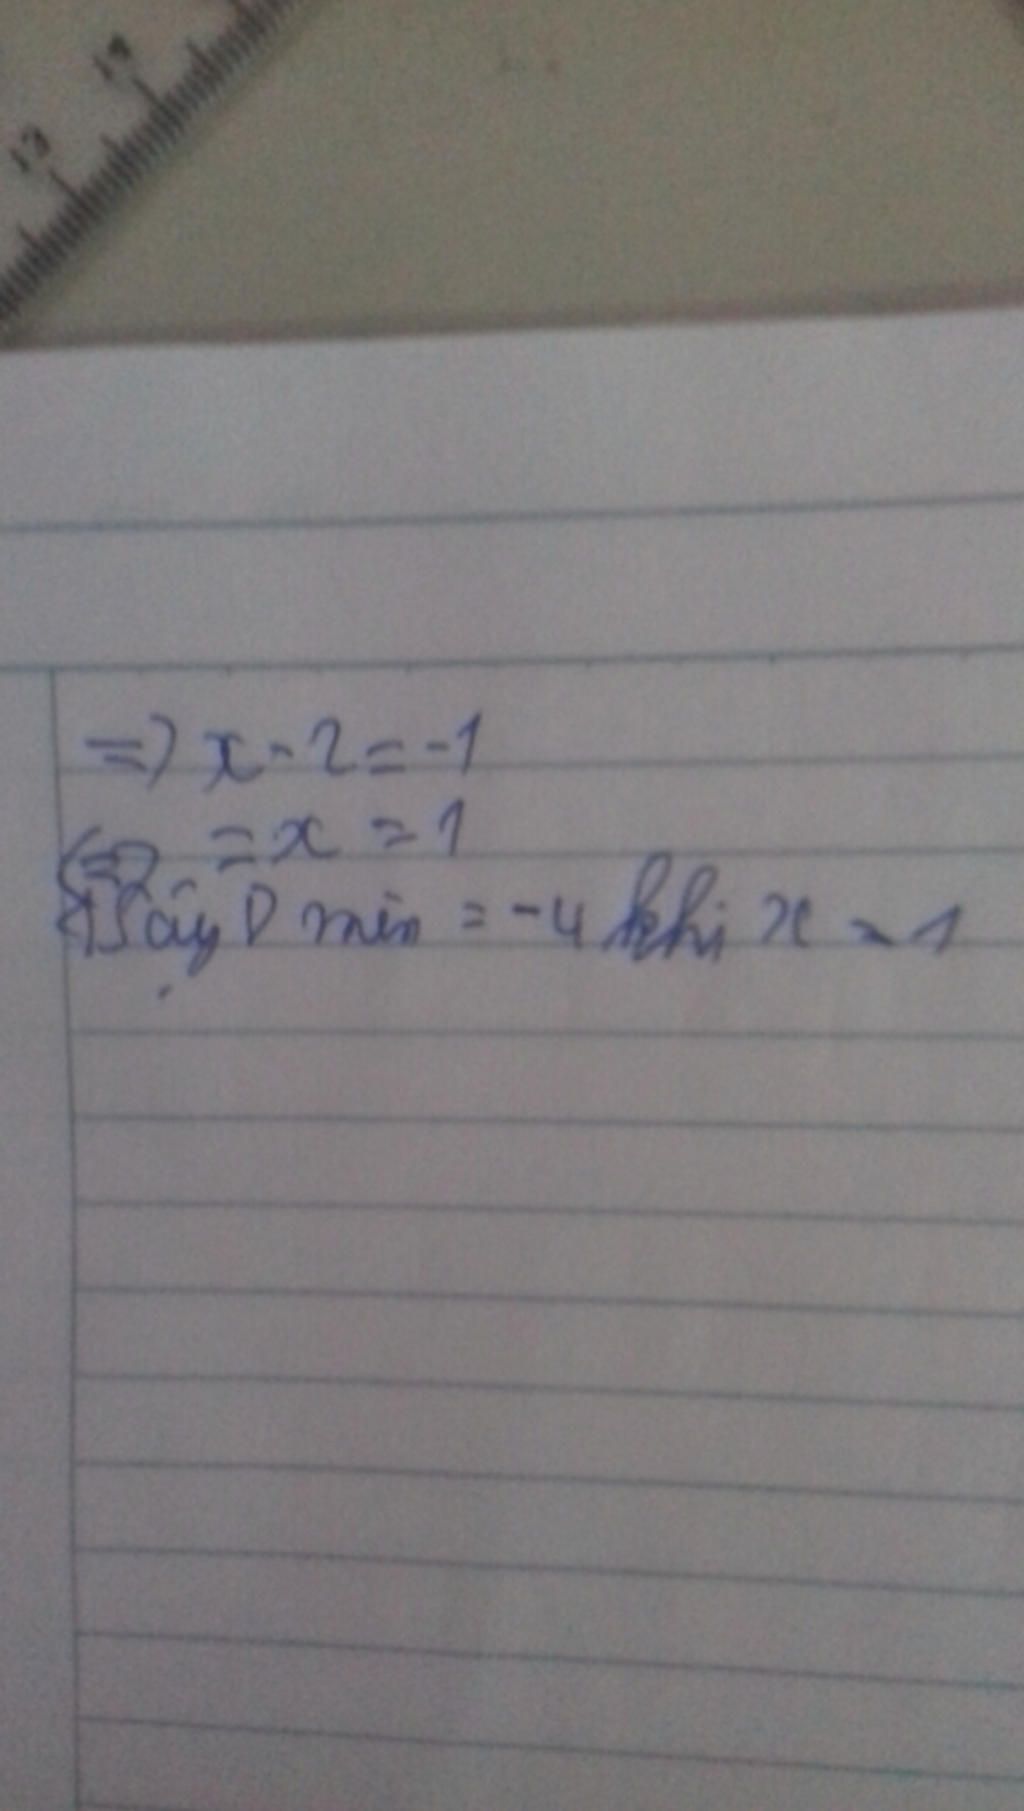 13 14
=> x - 2 = -1
<=> = x = 1
Vậy D min = -4 khi x = 1